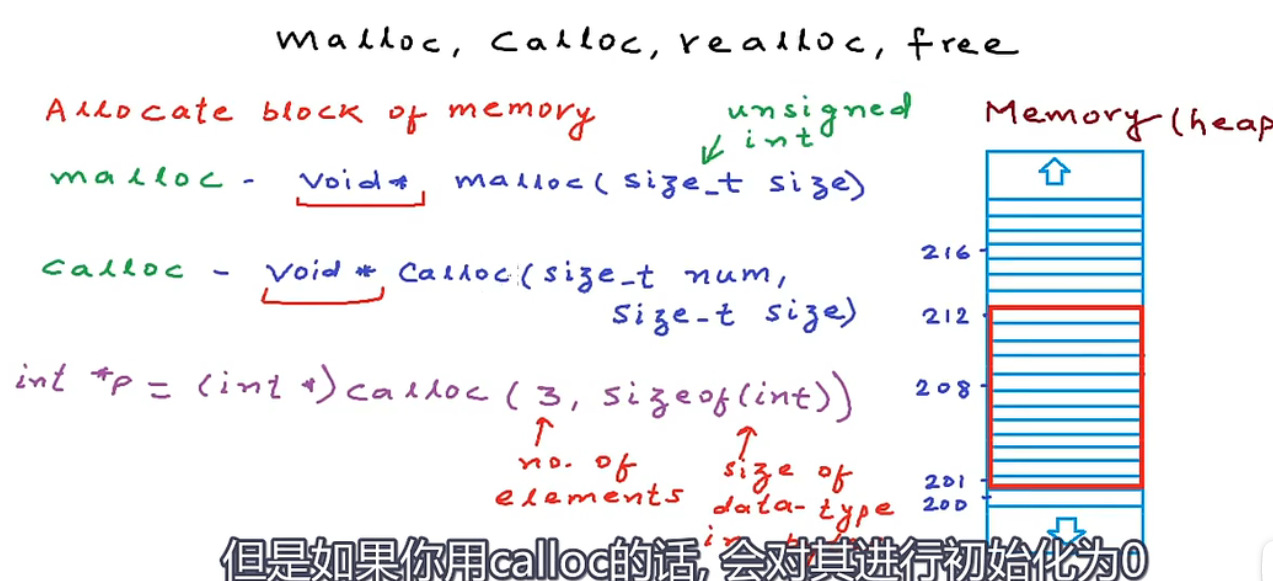 malloc, calloc, realloc, free
Allocate block of memory
unsigned
int
Memory (heap
malloc - void* malloc(size_t size)
216
calloc - void* calloc(size_t num,
size_t size)
212
int *p = (int *) calloc (3, sizeof(int))
208
no. of
elements
size of
data-type
201
200
但是如果你用calloc的话, 会对其进行初始化为0